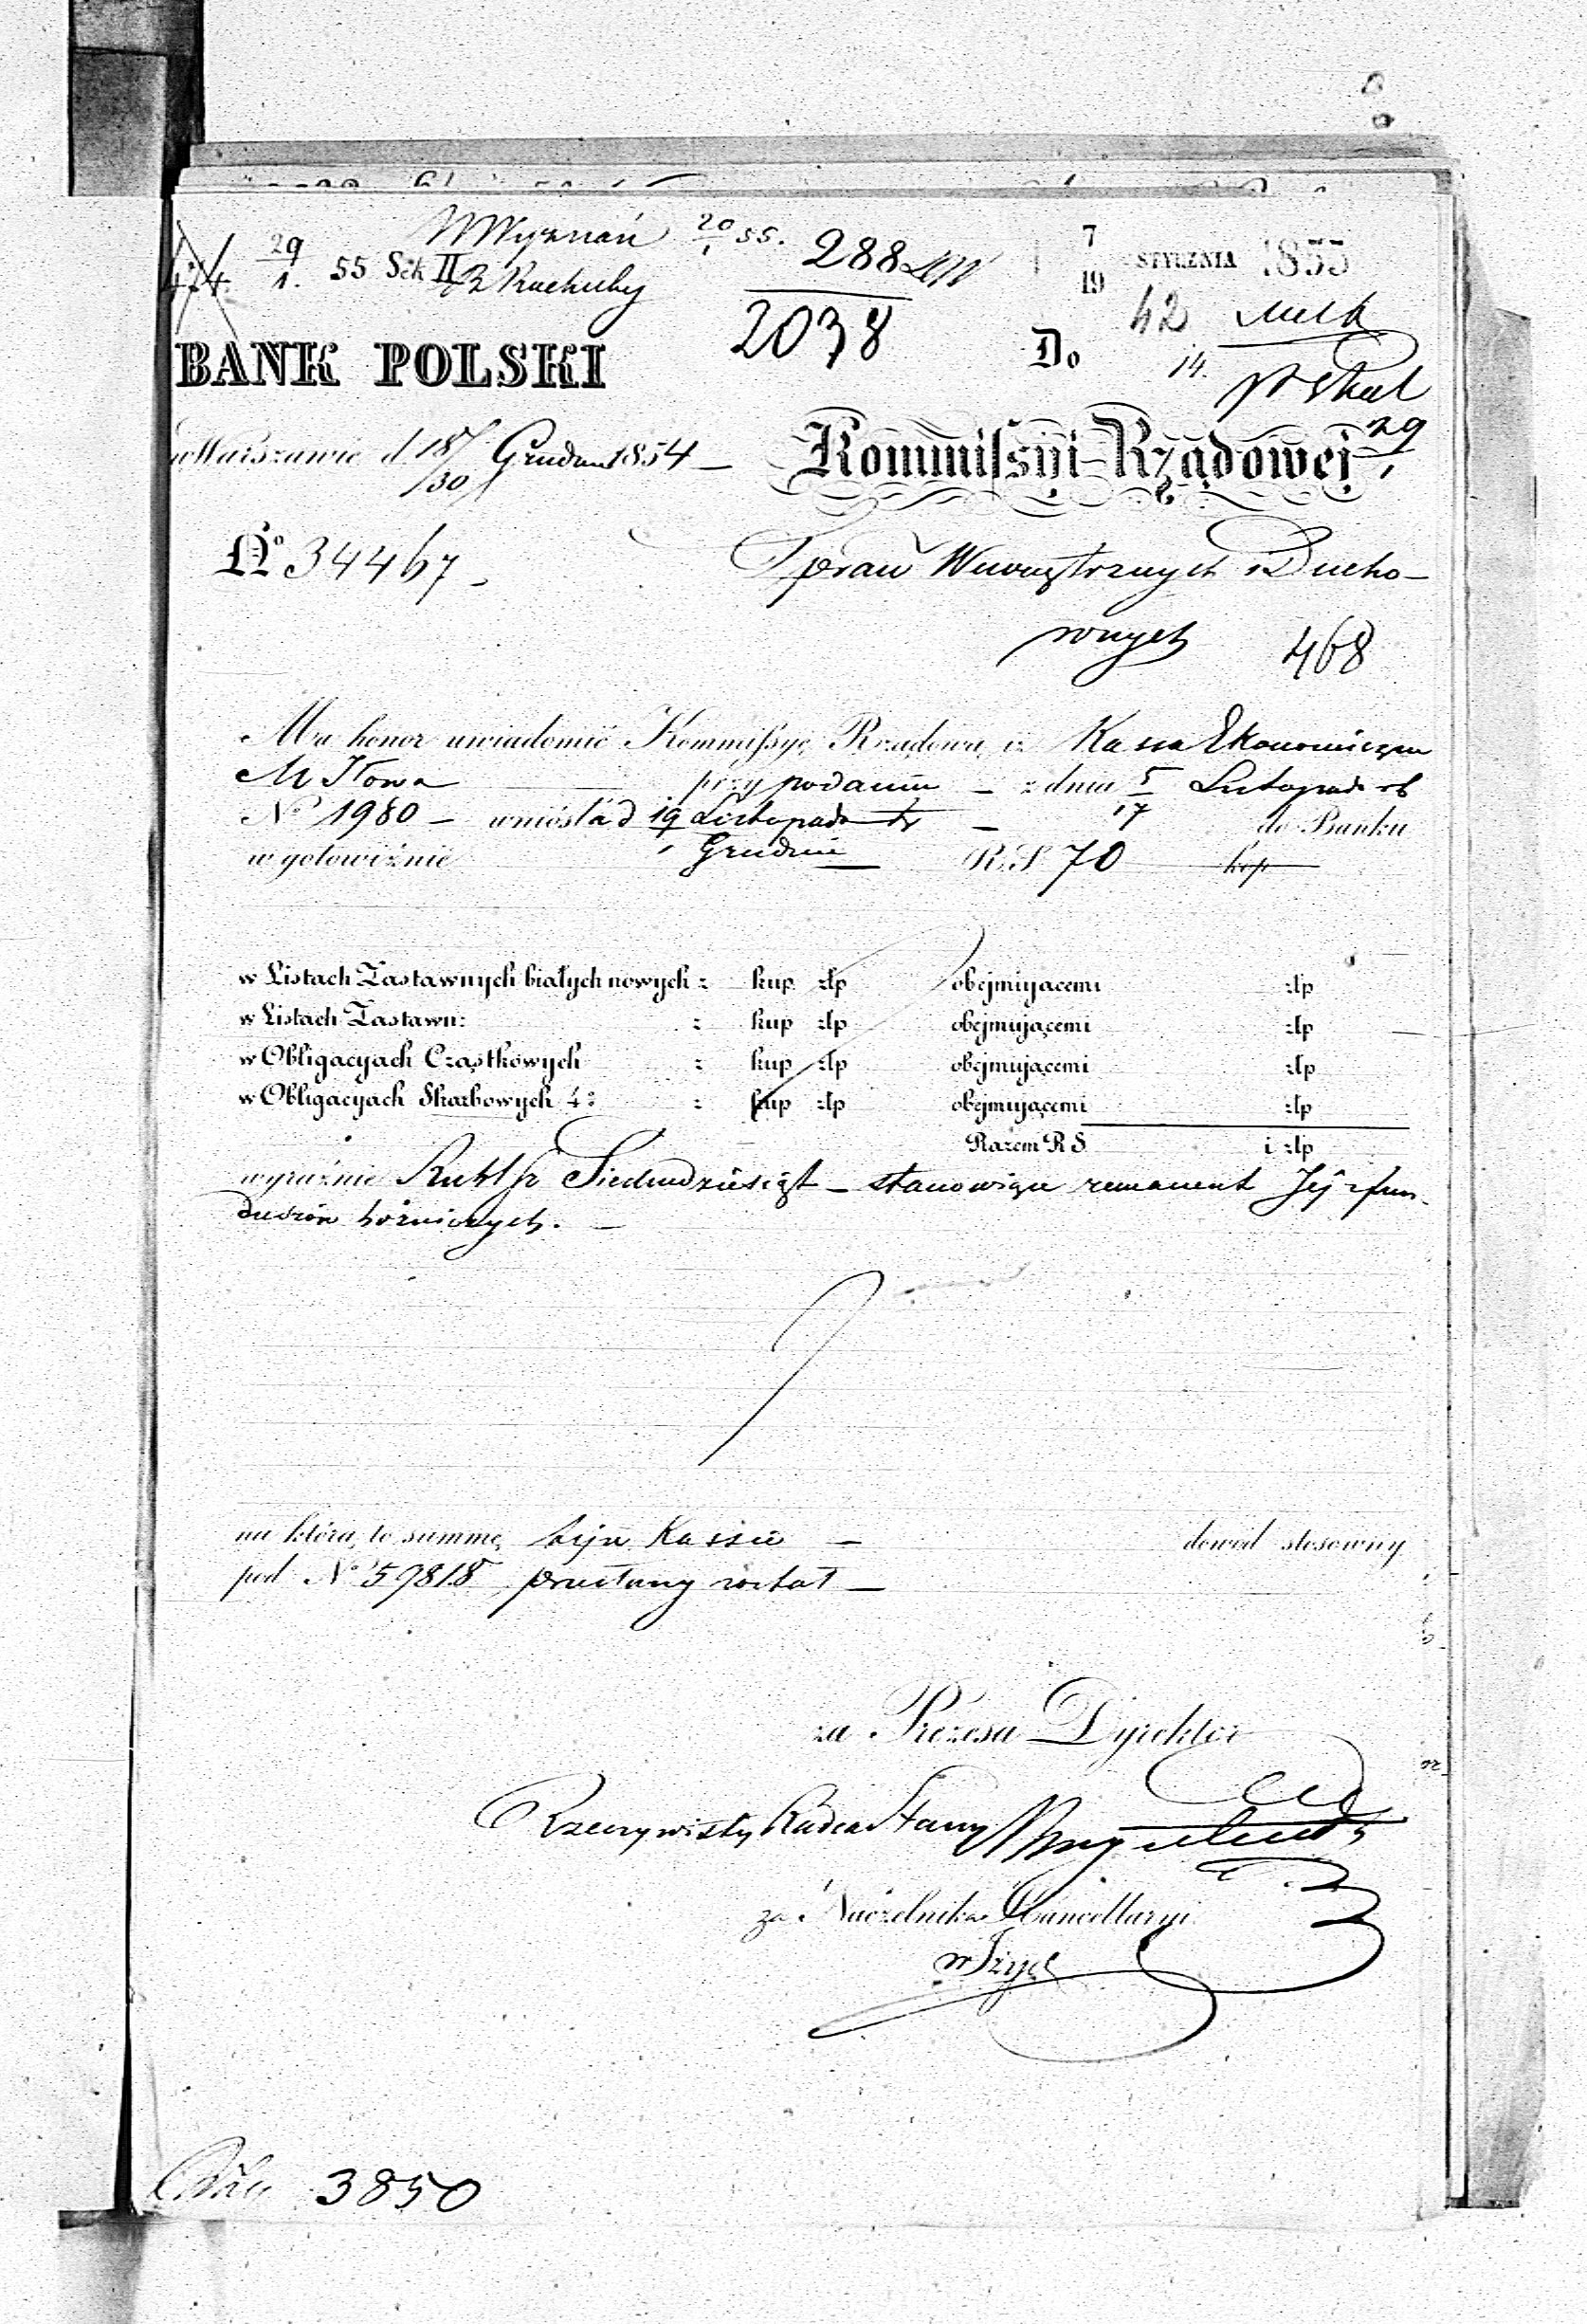 W Wyznań 20/1 55. 288
29/1. 55 Sek II B Rachuby
7/19 STYCZNIA 1855
2038
42
14.
BANK POLSKI
Do
29/1
w Warszawie d 18/30 Grudnia 1854 –
Kommissyi Rządowej
No 34467 –
Spraw Wewnętrznych i Ducho–
wnych 468
Ma honor uwiadomić Kommissyę Rządową, iż Kassa Ekonomiczna
M Iłowa przy podaniu – z dnia 5/17 Listopada rb
No 1980 – wniosła d 19 Listopada/1 Grudnia tr – do Banku
w gotowiźnie R.S 70 kop
w Listach Zastawnych białych nowych : kup. złp obejmującemi złp
w Listach Zastawn: : kup złp obejmującemi złp
w Obligacyach Cząstkowych : kup złp obejmującemi złp
w Obligacyach Skarbowych 4: : kup złp obejmującemi złp
Razem R S i złp
wyraźnie Rubli sr Siedmdziesiąt – stanowiące remanent Jej z fun–
duszów bóżniczych. –
na którą to summę tejże Kassie – dowód stosowny
pod No 59818 przesłany został –
za Prezesa Dyrektor
Rzeczywisty Radca Stanu
za Naczelnika Kancellaryi
3850